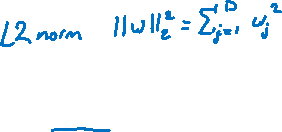 L2 norm ||w||₂² = ∑ⱼ₌₁ᴰ wⱼ²